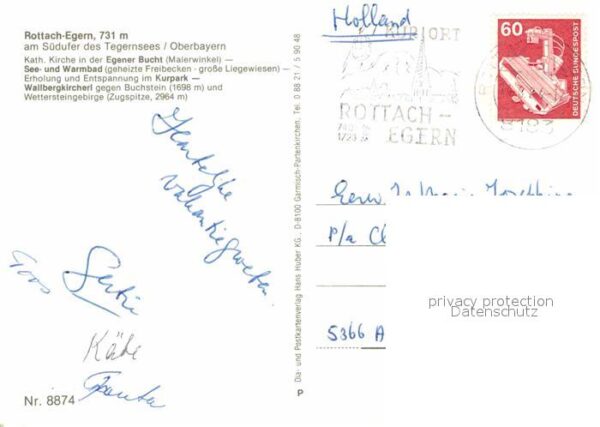 Rottach-Egern, 731 m
am Südufer des Tegernsees / Oberbayern
Kath. Kirche in der Egener Bucht (Malerwinkel) —
See- und Warmbad (geheizte Freibecken - große Liegewiesen) —
Erholung und Entspannung im Kurpark —
Wallbergkircherl gegen Buchstein (1698 m) und
Wettersteingebirge (Zugspitze, 2964 m)
Hartelijke
vakantiegroeten.
Toos
Käte
Nr. 8874
Dia- und Postkartenverlag Hans Huber KG., D-8100 Garmisch-Partenkirchen, Tel. 0 88 21 / 5 90 48
P
Holland
KURORT
ROTTACH-
EGERN
8183
60
DEUTSCHE BUNDESPOST
P/a
5366 A
privacy protection
Datenschutz